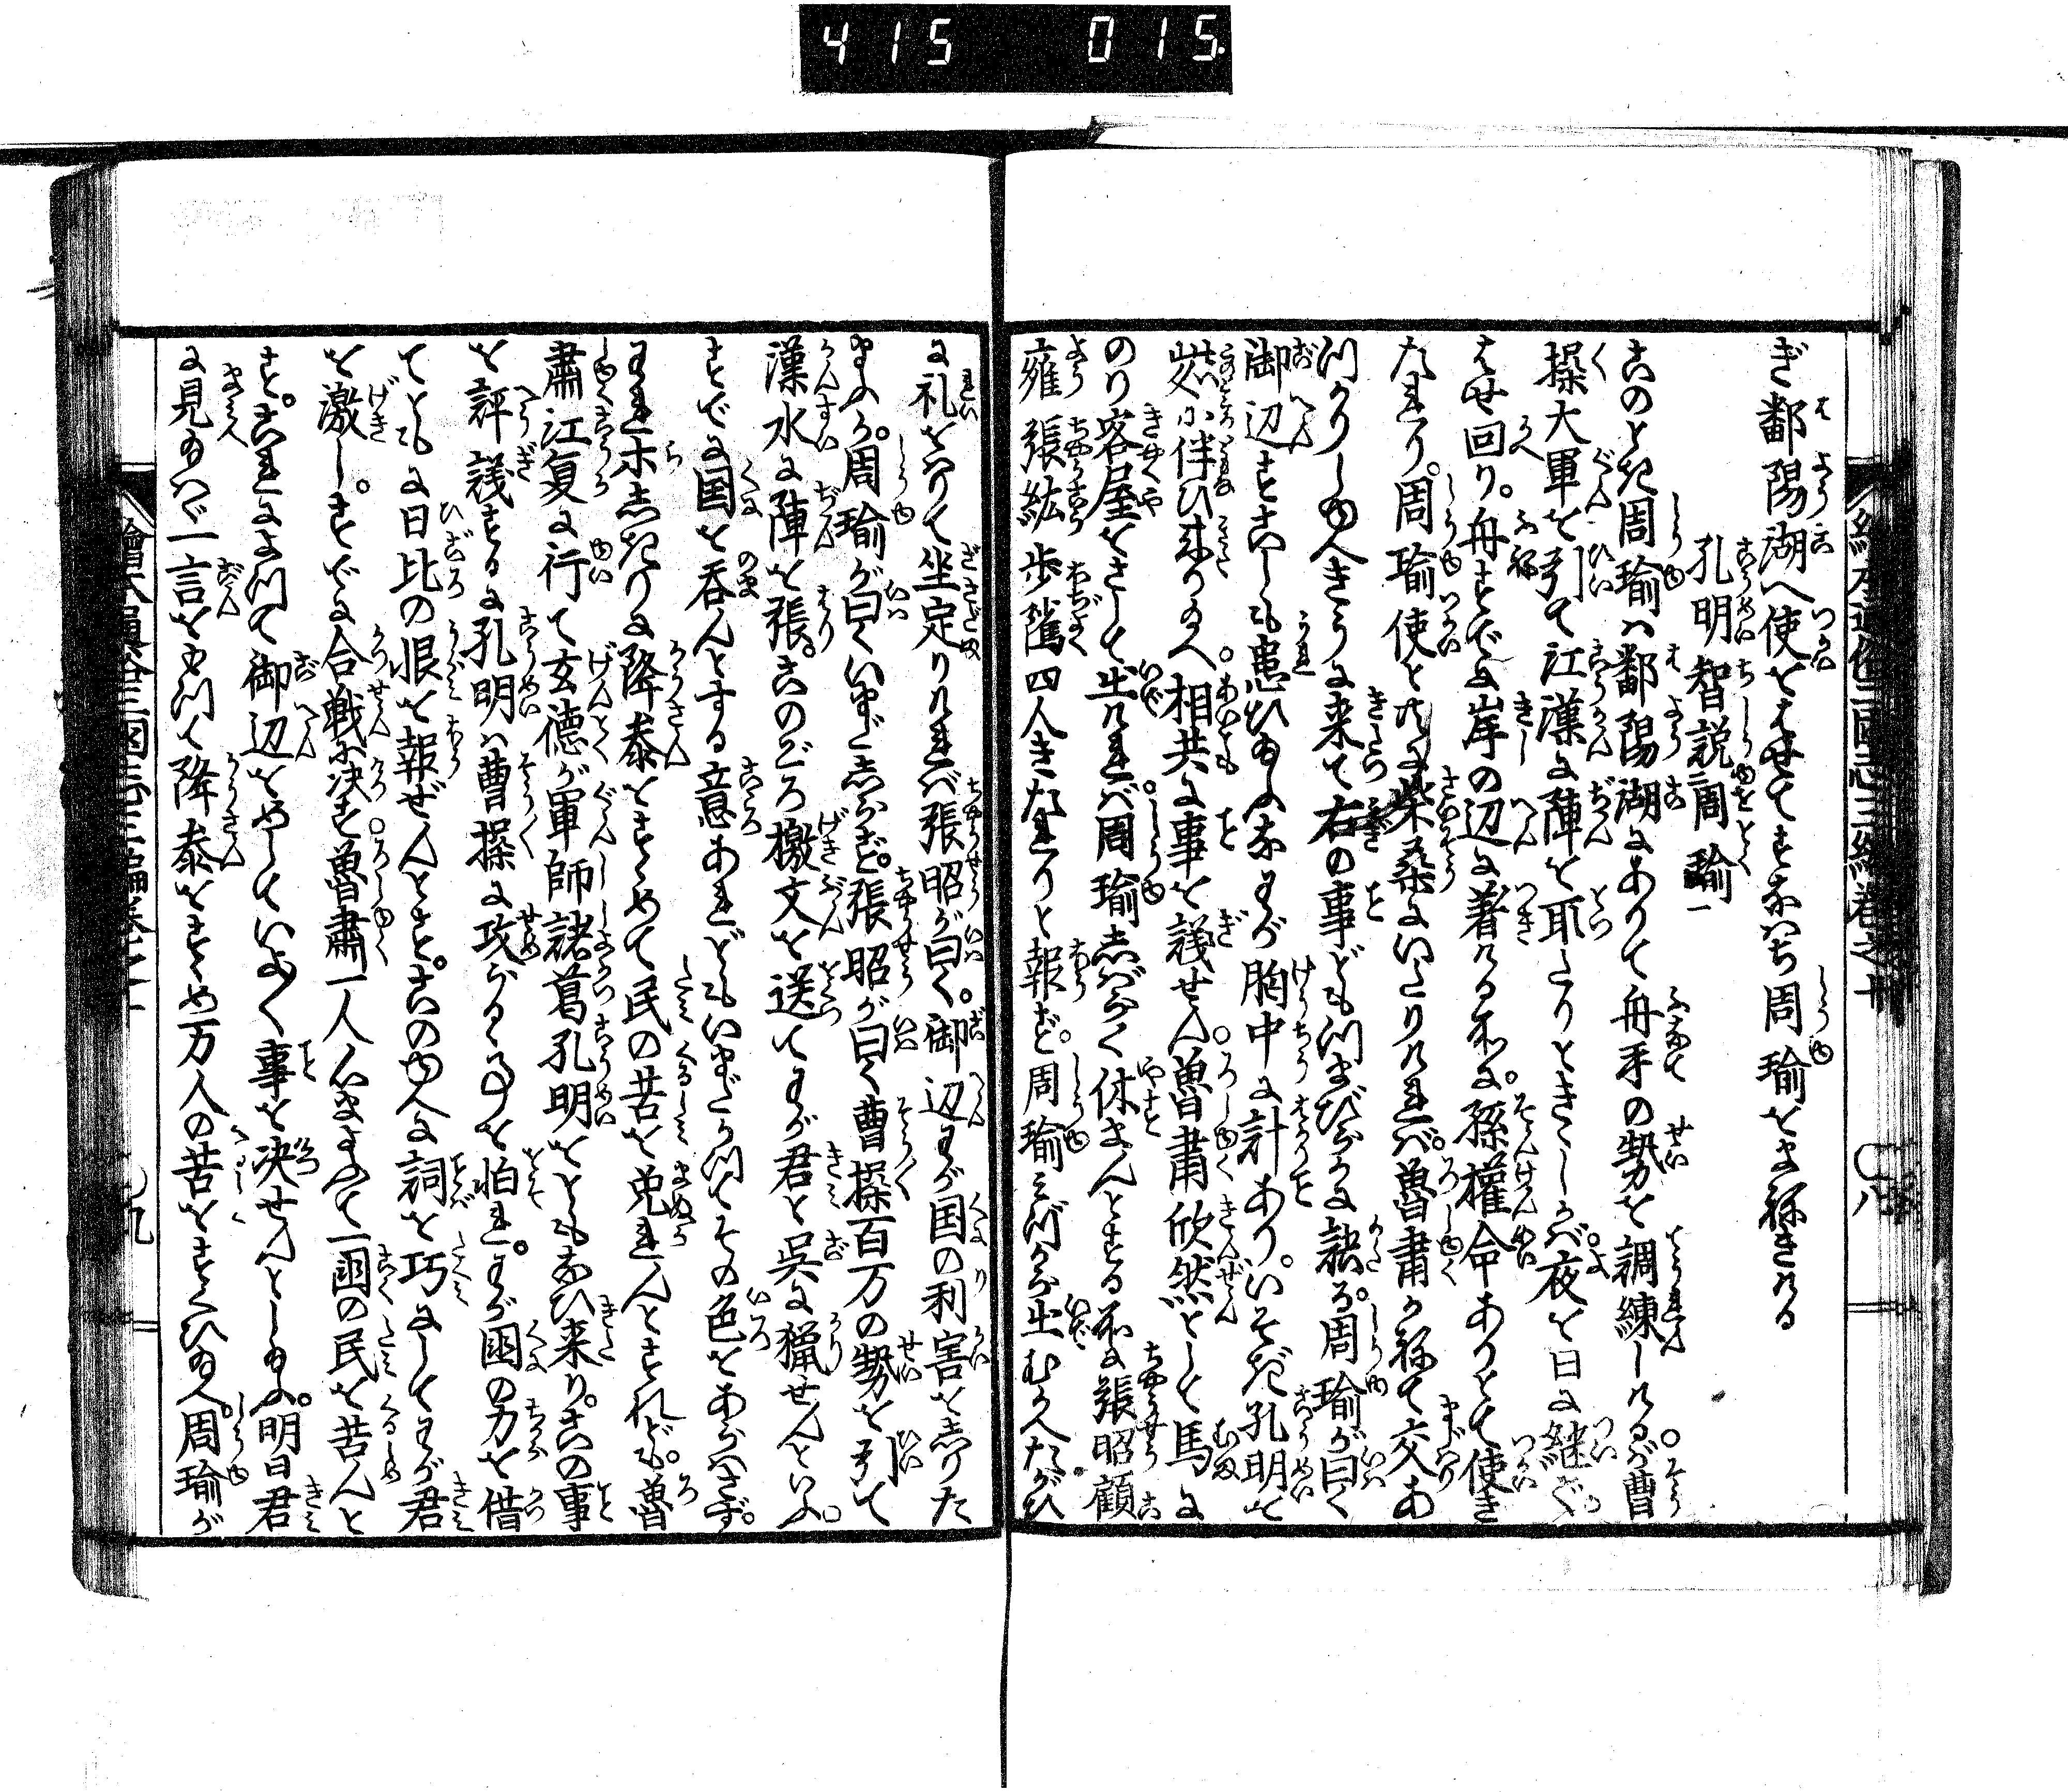 415 015.
繪本通俗三國志三編卷之十 ○八
ぎ鄱陽湖へ使をはせてすなはち周瑜をまねきける
孔明智説周瑜一
このとき周瑜ハ鄱陽湖にありて舟手の勢を調練しけるが。曹
操大軍を引て江漢に陣を取たりときこしかバ。夜を日に継で
はせ回り。舟すでに岸の辺に着ける所に。孫權命ありとて使き
たれり。周瑜使と共に柴桑にいたりけれバ。魯肅かねて交あ
つかりしゆへきうに来て右の事どもつまびらかに訣る。周瑜が曰く
御辺すこしも患ひ給ふなわが胸中に計あり。いそぎ孔明を
此に伴ひ来り給へ。相共に事を議せん。魯肅欣然として馬に
のり客屋をさして出けれバ。周瑜しばらく休まんとする所に張昭顧
雍張紘歩隲四人きたれりと報ず。周瑜みづから出むかへたがひ
に礼をおハりて坐定りけれバ張昭が曰く。御辺わが国の利害をしりた
まふか。周瑜が曰くいまだしらず。張昭が曰く曹操百万の勢を引て
漢水に陣を張。このごろ檄文を送てわが君と呉に猟せんといふ。
すでに国を呑んとする意あれどもいまだかつてその色をあらハさず。
われホしきりに降参をすゝめて民の苦を免れんとすれども。魯
肅江夏に行て玄徳が軍師諸葛孔明をともなひ来り。この事
を評議するに孔明ハ曹操に攻らるゝ事を怕れ。わが国の力を借
てともに日比の恨を報ぜんとす。このゆへに詞を巧にしてわが君
を激し。すでに合戦に决す。魯肅一人心まよふて一国の民を苦んと
す。これによつて御辺をめしていよ〳〵事を决せんとし給ふ。明日君
に見給ハゞ一言をもつて降参をすゝめ万人の苦をすくひ給へ。周瑜が
繪本通俗三國志三編卷之十 ○九